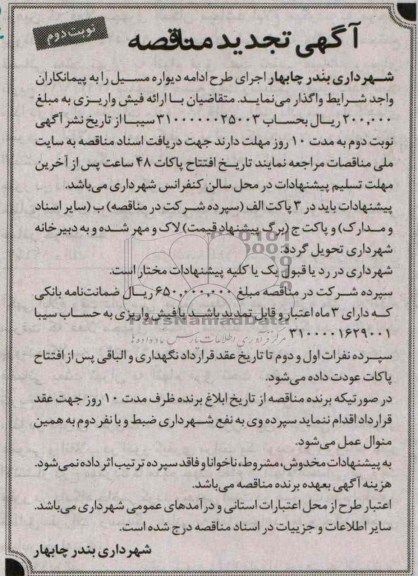 نوبت دوم
آگهی تجدید مناقصه
شهرداری بندر چابهار اجرای طرح ادامه دیواره مسیل را به پیمانکاران
واجد شرایط واگذار می‌نماید. متقاضیان با ارائه فیش واریزی به مبلغ
۲۰۰,۰۰۰ ریال بحساب ۳۱۰۰۰۰۰۰۲۵۰۰۳ سیبا از تاریخ نشر آگهی
نوبت دوم به مدت ۱۰ روز مهلت دارند جهت دریافت اسناد مناقصه به سایت
ملی مناقصات مراجعه نمایند تاریخ افتتاح پاکات ۴۸ ساعت پس از آخرین
مهلت تسلیم پیشنهادات در محل سالن کنفرانس شهرداری می‌باشد.
پیشنهادات باید در ۳ پاکت الف (سپرده شرکت در مناقصه) ب (سایر اسناد
و مدارک) و پاکت ج (برگ پیشنهاد قیمت) لاک و مهر شده و به دبیرخانه
شهرداری تحویل گردد.
شهرداری در رد یا قبول یک یا کلیه پیشنهادات مختار است.
سپرده شرکت در مناقصه مبلغ ۶۵۰,۰۰۰,۰۰۰ ریال ضمانت‌نامه بانکی
که دارای ۳ ماه اعتبار و قابل تمدید باشد یا فیش واریزی به حساب سیبا
ParsNamadData
۳۱۰۰۰۰۱۶۲۹۰۰۱
سپرده نفرات اول و دوم تا تاریخ عقد قرارداد نگهداری و الباقی پس از افتتاح
پاکات عودت داده می‌شود.
در صورتیکه برنده مناقصه از تاریخ ابلاغ برنده ظرف مدت ۱۰ روز جهت عقد
قرارداد اقدام ننماید سپرده وی به نفع شهرداری ضبط و با نفر دوم به همین
منوال عمل می‌شود.
به پیشنهادات مخدوش، مشروط، ناخوانا و فاقد سپرده ترتیب اثر داده نمی‌شود.
هزینه آگهی بعهده برنده مناقصه می‌باشد.
اعتبار طرح از محل اعتبارات استانی و درآمدهای عمومی شهرداری می‌باشد.
سایر اطلاعات و جزییات در اسناد مناقصه درج شده است.
شهرداری بندر چابهار